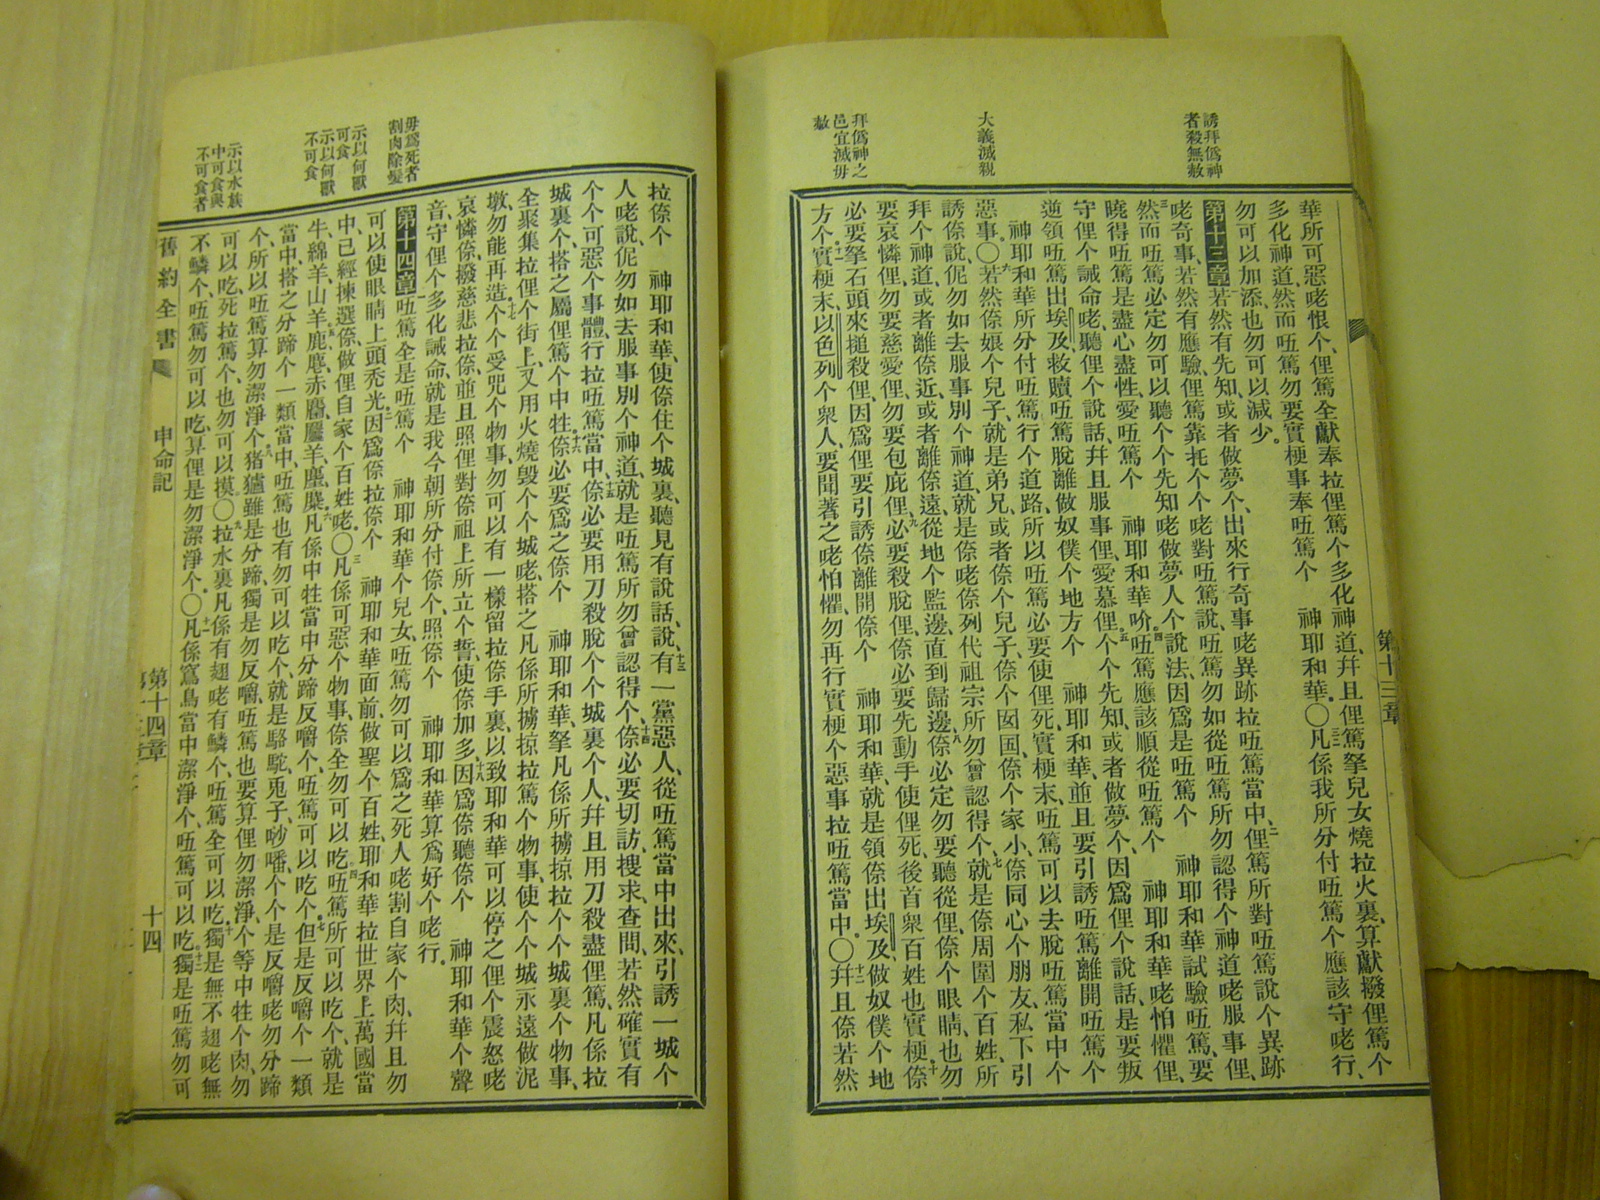 誘拜僞神
者殺無赦
大義滅親
拜僞神之
邑宜滅毋
赦
第十三章
華所可惡咾恨个、俚篤全獻奉拉俚篤个多化神道、幷且俚篤拏兒女燒拉火裏、算獻撥俚篤个
多化神道、然而呸篤勿要實梗事奉呸篤个 神耶和華。〇三二凡係我所分付呸篤个應該守咾行、
勿可以加添、也勿可以減少。
第十三章若然有先知、或者做夢个、出來行奇事咾異跡拉呸篤當中、二俚篤所對呸篤說个異跡
咾奇事、若然有應驗、俚篤靠托个个咾對呸篤說、呸篤勿如從呸篤所勿認得个神道咾服事俚、
三然而呸篤必定勿可以聽个个先知咾做夢人个說法、因爲是呸篤个 神耶和華試驗呸篤、要
曉得呸篤是盡心盡性、愛呸篤个 神耶和華吤、四呸篤應該順從呸篤个 神耶和華咾怕懼俚、
守俚个誡命咾、聽俚个說話、幷且服事俚、愛慕俚、五个个先知、或者做夢个、因爲俚个說話、是要叛
逆領呸篤出埃及、救贖呸篤脫離做奴僕个地方个 神耶和華、並且要引誘呸篤離開呸篤个
神耶和華所分付呸篤行个道路、所以呸篤必要使俚死、實梗末、呸篤可以去脫呸篤當中个
惡事〇六若然倷娘个兒子、就是弟兄、或者倷个兒子、倷个囡囝、倷个家小、倷同心个朋友、私下引
誘倷說、伲勿如去服事別个神道、就是倷咾倷列代祖宗所勿曾認得个、七就是倷周圍个百姓、所
拜个神道、或者離倷近、或者離倷遠、從地个監邊、直到歸邊、八倷必定勿要聽從俚、倷个眼睛也勿
要哀憐俚、勿要慈愛俚、勿要包庇俚、九必要殺脫俚、倷必要先動手使俚死、後首衆百姓也實梗、十倷
必要拏石頭來搥殺俚、因爲俚要引誘倷離開倷个 神耶和華、就是領倷出埃及、做奴僕个地
方个、十一實梗末、以色列个衆人、要聞著之咾怕懼、勿再行實梗个惡事拉呸篤當中。〇十二幷且倷若然
毋爲死者
割肉除髮
示以何獸
可食
示以何獸
不可食
示以水族
中可食與
不可食者
拉倷个 神耶和華、使倷住个城裏、聽見有說話、說、十三有一黨惡人、從呸篤當中出來、引誘一城个
人咾說、伲勿如去服事別个神道、就是呸篤所勿曾認得个、十四倷必要切訪搜求、查問、若然確實有
个个可惡个事體、行拉呸篤當中、十五倷必要用刀殺脫个个城裏个人、幷且用刀殺盡俚篤、凡係拉
城裏个、搭之屬俚篤个中牲、十六倷必要爲之倷个 神耶和華、拏凡係所擄掠拉个个城裏个物事、
全聚集拉俚个街上、又用火燒毀个个城咾、搭之凡係所擄掠拉篤个物事、使个个城永遠做泥
墩、勿能再造、十七个个受咒个物事、勿可以有一樣留拉倷手裏、以致耶和華可以停之俚个震怒咾
哀憐倷、撥慈悲拉倷、並且照俚對倷祖上所立个誓、使倷加多、十八因爲倷聽倷个 神耶和華个聲
音、守俚个多化誡命、就是我今朝所分付倷个、照倷个 神耶和華算爲好个咾行。
第十四章呸篤全是呸篤个 神耶和華个兒女、呸篤勿可以爲之死人咾割自家个肉、幷且勿
可以使眼睛上頭禿光、二因爲倷拉倷个 神耶和華面前、做聖个百姓、耶和華拉世界上萬國當
中、已經揀選倷、做俚自家个百姓咾。〇三凡係可惡个物事、倷全勿可以吃、四呸篤所可以吃个、就是
牛、綿羊、山羊、五鹿、麀、赤麕、麢羊、麈、麋、六凡係中牲當中分蹄反嚼个、呸篤可以吃个、七但是反嚼个一類
當中、搭之分蹄个一類當中、呸篤也有勿可以吃个、就是駱駝、兎子、吵噃、个个是反嚼咾勿分蹄
个、所以呸篤算勿潔淨个、八猪玀雖是分蹄、獨是勿反嚼、呸篤也要算俚勿潔淨、个等中牲个肉、勿
可以吃、死拉篤个、也勿可以摸〇九拉水裏凡係有翅咾有鱗个、呸篤全可以吃、十獨是無不翅咾無
不鱗个、呸篤勿可以吃、算俚是勿潔淨个。〇十一凡係窵鳥當中潔淨个、呸篤可以吃、十二獨是呸篤勿可
舊約全書
申命記
第十四章
十四